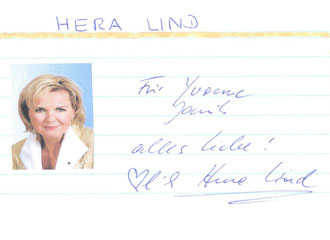 HERA LIND
Für Yvonne
alles Liebe!
Hera Lind